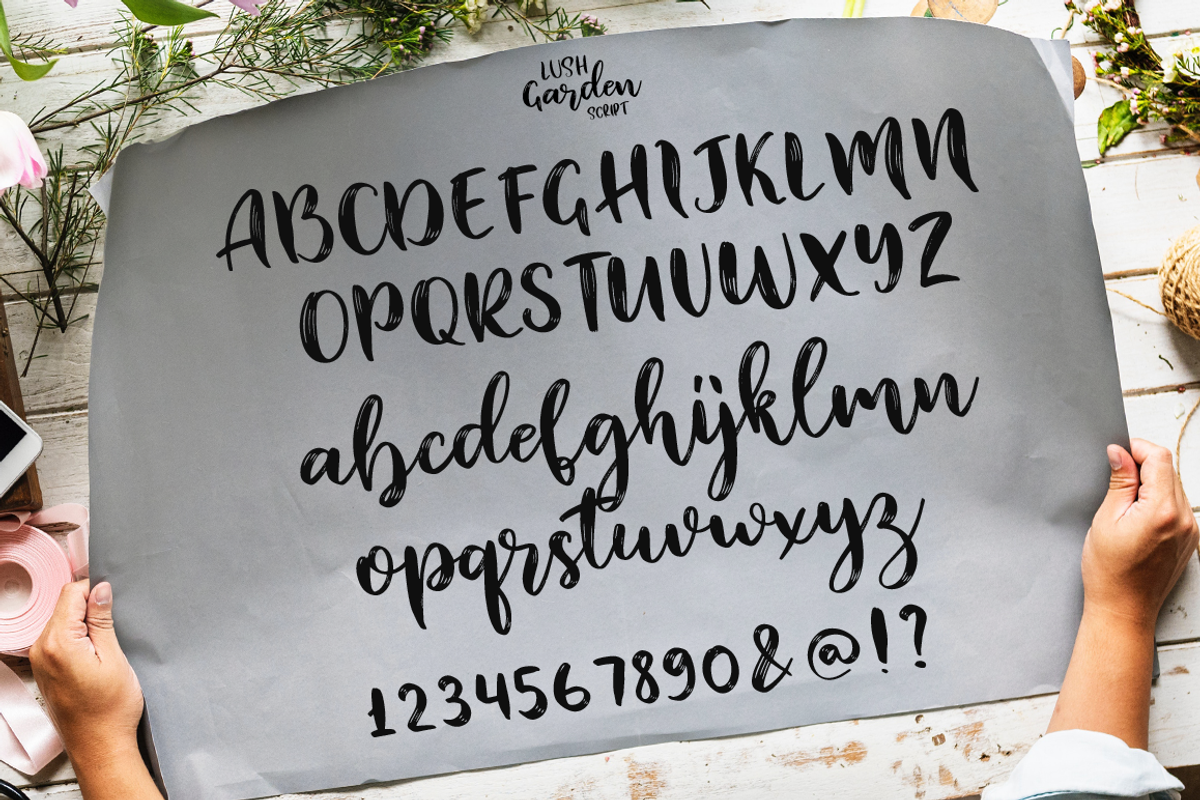 LUSH
Garden
SCRIPT
ABCDEFGHIJKLMN
OPQRSTUVWXYZ
abcdefghijklmn
opqrstuvwxyz
1234567890&@!?